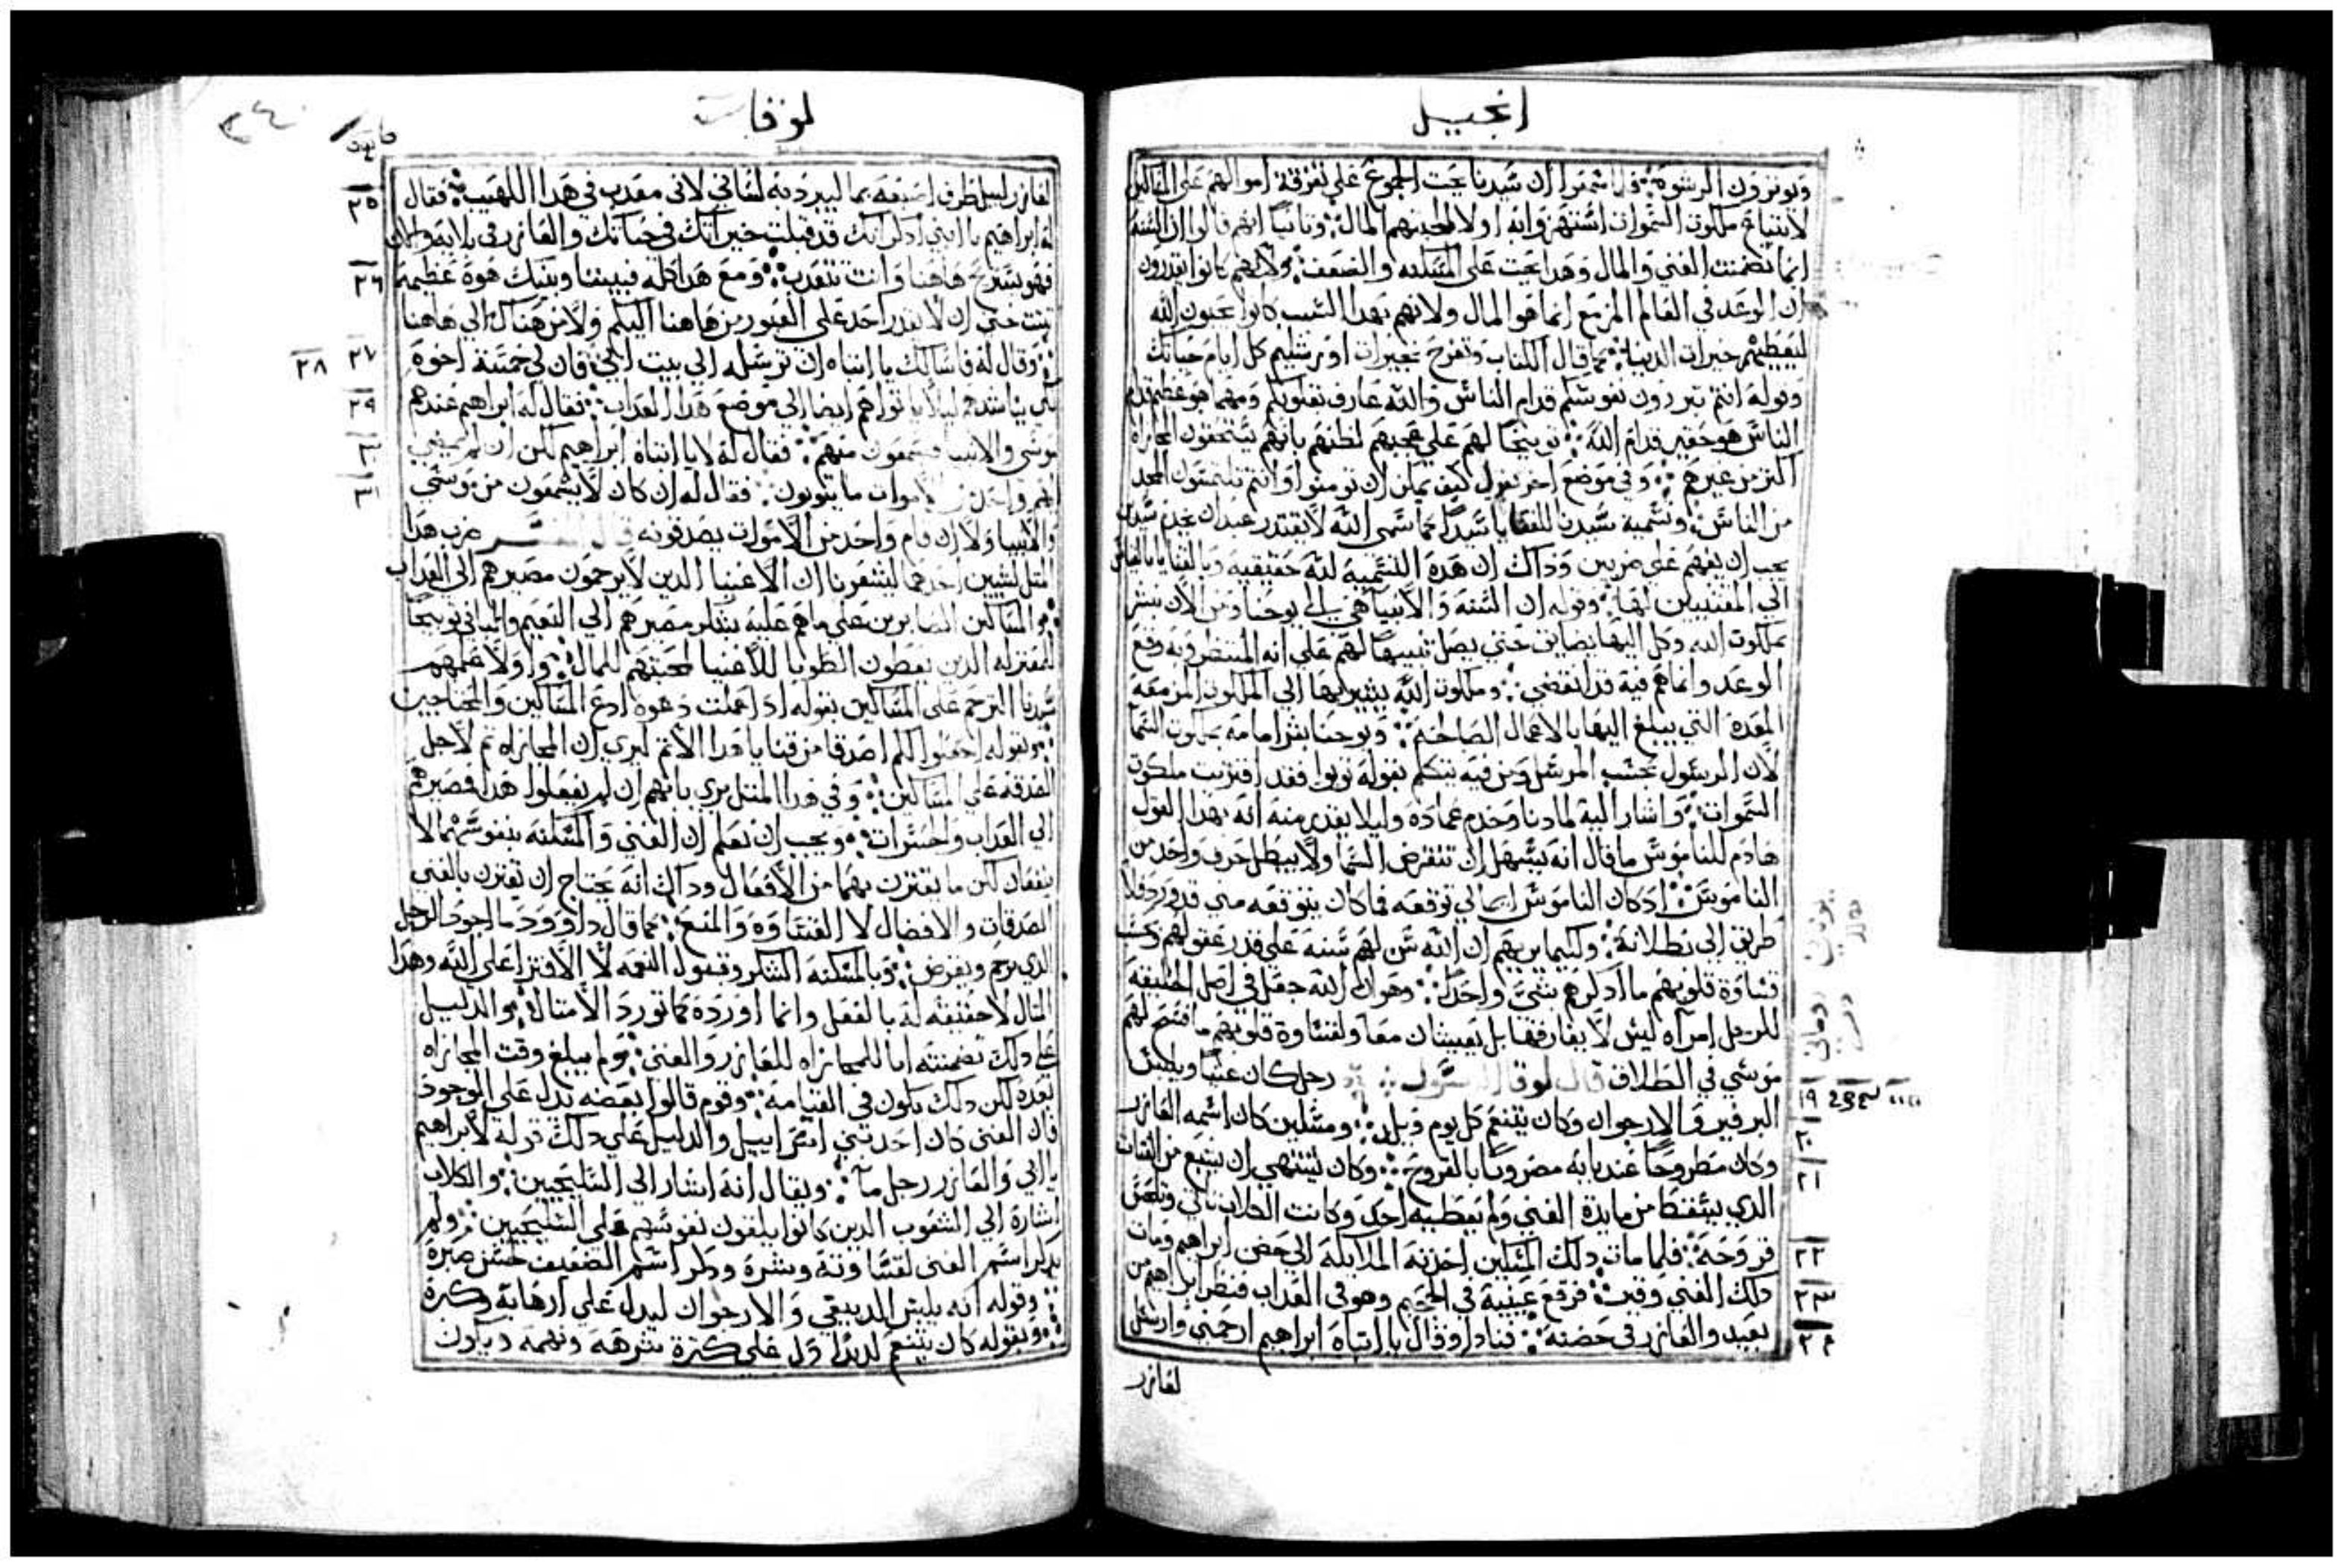 انجيل
ويوثرون الرشوة فلما شعروا ان سيدنا يحث الجموع على تفرقة اموالهم على المساكين
لابتياع ملكوت السموات استهزوا به اولا لمحبتهم المال وثانيا انهم قالوا ان السنة
انما تضمنت الغني والمال وهدا يحث على المسكنه والضعف ولانهم كانوا يقدرون
ان الوعد في العالم المزمع انما هو المال ولانهم بهدا السبب كانوا يحبون الله
ليعطيهم خيرات الدنيا كما قال الكتاب وتفرح بخيرات اورشليم كل ايام حياتك
وقوله انتم تبررون نفوسكم قدام الناس والله عارف بقلوبكم ومهما هو عظيم قدام
الناس هو حقير قدام الله توبيخا لهم على عجبهم لظنهم بانهم يستحقون المجازاه
اكثر من غيرهم وفي موضع اخر يقول كيف يمكن ان تومنوا وانتم تلتمسون المجد
من الناس وتسمية سيدنا للقنايا سيدا كما سمى الله لا يقتدر عبدان يخدم سيدين
يجب ان يفهم على ضربين وداك ان هده التسمية لله حقيقيه وبالقنايا بالقياس
الي المقتنيين لها وقوله ان السنه والانبيا هي الي يوحنا ومن الان يبشر
بملكوت الله وكل اليها يضاين حتي يصل تنبيها لهم على انه المنتظر وبه وقع
الوعد وانما هم فيه قد انقضي وملكوت الله يشير بها الي الملكوت المزمعة
المعدة التي يبلغ اليها بالاعمال الصالحه ويوحنا بشر امامه بملكوت السما
لان الرسول بحسب المرسل ومن فيه يتكلم بقوله توبوا فقد اقتربت ملكوت
السموات واشار اليه لمادنا وخدم عماده وليلا يقدر منه انه بهدا القول
هادم للناموس ما قال انه يسهل ان تنقرض السما ولا يبطل حرف واحد من
الناموس اد كان الناموس انما الي توقعه فما كان يتوقعه متي قد ورد فلا
طريق الي بطلانه ولكيما يريهم ان الله سن لهم سنه على قدر عقولهم وبحسب
قساوة قلوبهم ما ادكرهم بشي واحد وهو ان الله جعل في اصل الخليقه
للرجل امراه ليس لا يفارقها بل يعيشان معا ولقساوة قلوبهم ما افسح لهم
موسي في الطلاق قال لوقا الرسول رجل كان غنيا ويلبس
١٩ البرفير والارجوان وكان يتنعم كل يوم ومسكين كان اسمه العازر
٢٠ وكان مطروحا عند بابه مضروبا بالقروح وكان يشتهي ان يشبع من الفتات
٢١ الدي يسقط من مايدة الغني ولم يعطيه احد وكانت الكلاب تاتي وتلحس
٢٢ قروحه فلما مات دلك المسكين اخدته الملايكه الي حضن ابراهيم ومات
٢٣ دلك الغني وقبر فرفع عينيه في الجحيم وهو في العداب فنظر ابراهيم من
٢٤ بعيد والعازر في حضنه فنادا وقال يا ابتاه ابراهيم ارحمني وارسل
لعازر
لوقا
٢٥ لعازر ليبل طرف اصبعه بما ليبرد به لساني لاني معدب في هدا اللهيب فقال
له ابراهيم يا ابني ادكر انك قد قبلت خيراتك في حياتك والعازر في بلايه والان
٢٦ فهو يستريح هاهنا وانت تتعدب ومع هدا كله فبيننا وبينك هوة عظيمه
تثبت حتي ان لا يقدر احد على العبور من هاهنا اليكم ولا من هناك الي هاهنا
٢٧ ٢٨ وقال له فاسالك يا ابتاه ان ترسله الي بيت ابي فان لي خمسة اخوة
٢٩ لكي يناشدهم ليلا ياتوا هم ايضا الي موضع هدا العداب فقال له ابراهيم عندهم
٣٠ موسي والانبيا فيسمعون منهم فقال له لا يا ابتاه ابراهيم لكن ان لم يمضي
٣١ اليهم واحد من الاموات ما يتوبون فقال له ان كان لا يسمعون من موسي
والانبيا ولا ان قام واحد من الاموات يصدقونه قال المفسر ضرب هدا
المثل لشيين احدهما ليشعرنا ان الاغنيا الدين لا يرحمون مصيرهم الي العداب
والمساكين الصابرين على ما هم عليه بشكر مصيرهم الي النعيم والثاني توبيخا
للمعتزله الدين يعطون الطوبا للاغنيا لمحبتهم للمال واولا علمهم
سيدنا الترحم على المساكين بقوله ادا عملت دعوه ادع المساكين والمحتاجين
وبقوله اجعلوا لكم اصدقا من قنايا هدا الاثم ليري ان المجازاه ثم لاجل
الصدقه على المساكين وفي هدا المثل يري بانهم ان لم يفعلوا هدا فمصيرهم
الي العداب والحسرات ويجب ان نعلم ان الغني والمسكنه بنفوسهما لا
ينفعان لكن ما يقترن بهما من الافعال وداك انه يحتاج ان يقترن بالغني
الصدقات والافضال لا القساوه والمنع كما قال داوود ما اجود الرجل
الدي يرحم ويقرض وبالمسكنه الشكر وقبول النعمه لا الافترا على الله وهدا
المثال لا حقيقه له بالفعل وانما اورده كما تورد الامثال والدليل
على دلك تضمنته اما للمجازاه للعازر والغني ولم يبلغ وقت المجازاه
بعده لكن دلك يكون في القيامه وقوم قالوا بعضه يدل على الوجود
فان الغني كان احد بني اسراييل والدليل على دلك قوله لابراهيم
يا ابي والعازر رجل ما ويقال انه اشار الي السليحيين والكلاب
اشارة الي الشعوب الدين كانوا يلقون نفوسهم على السليحيين ولم
يدكر اسم الغني لقساوته وشره ودكر اسم الضعيف لحسن صبره
وقوله انه يلبس الدبيقي والارجوان ليدل على ارهابه وكثرة
وبقوله كان يتنعم لديدا دل على كثرة شرهه ونهمه